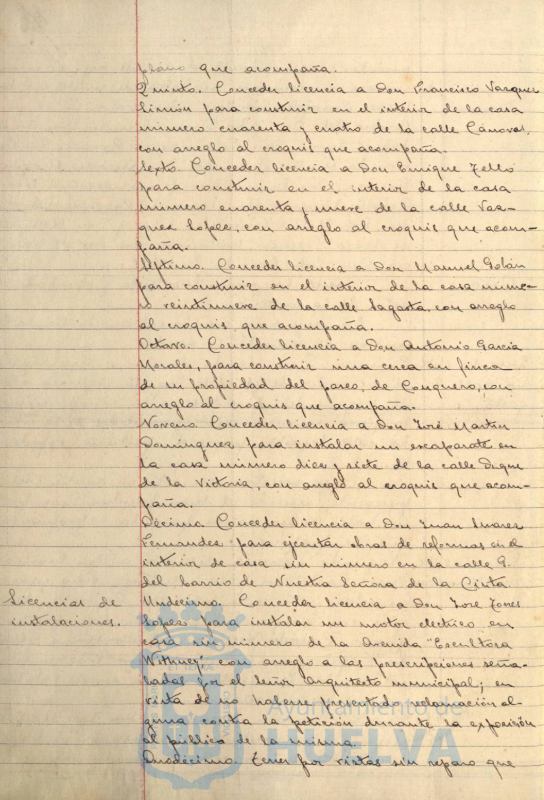 plano que acompaña.
Quinto. Conceder licencia a Don Francisco Vazquez
Limón para construir en el interior de la casa
número cuarenta y cuatro de la calle Cánovas,
con arreglo al croquis que acompaña.
Sexto. Conceder licencia a Don Enrique Tello
para construir en el interior de la casa
número cuarenta y nueve de la calle Vaz-
quez Lopez, con arreglo al croquis que acom-
paña.
Séptimo. Conceder licencia a Don Manuel Golán
para construir en el interior de la casa núme-
ro veintinueve de la calle Sagasta, con arreglo
al croquis que acompaña.
Octavo. Conceder licencia a Don Antonio Garcia
Morales, para construir una cerca en finca
de su propiedad del paseo de Conquero, con
arreglo al croquis que acompaña.
Noveno. Conceder licencia a Don José Martin
Dominguez para instalar un escaparate en
la casa número diez y siete de la calle Duque
de la Victoria, con arreglo al croquis que acom-
paña.
Décimo. Conceder licencia a Don Juan Suarez
Fernandez para ejecutar obras de reformas en el
interior de casa sin número en la calle G.
del barrio de Nuestra Señora de la Cinta.
Licencias de
instalaciones.
Undécimo. Conceder licencia a Don José Jones
Lopez para instalar un motor electrico en
casa sin número de la Avenida "Escultora
Withney" con arreglo a las prescripciones seña-
ladas por el señor Arquitecto municipal; en
vista de no haberse presentado reclamación al-
guna contra la petición durante la exposición
al público de la misma.
Duodécimo. Tener por vistas sin reparo que
Ayuntamiento de
HUELVA